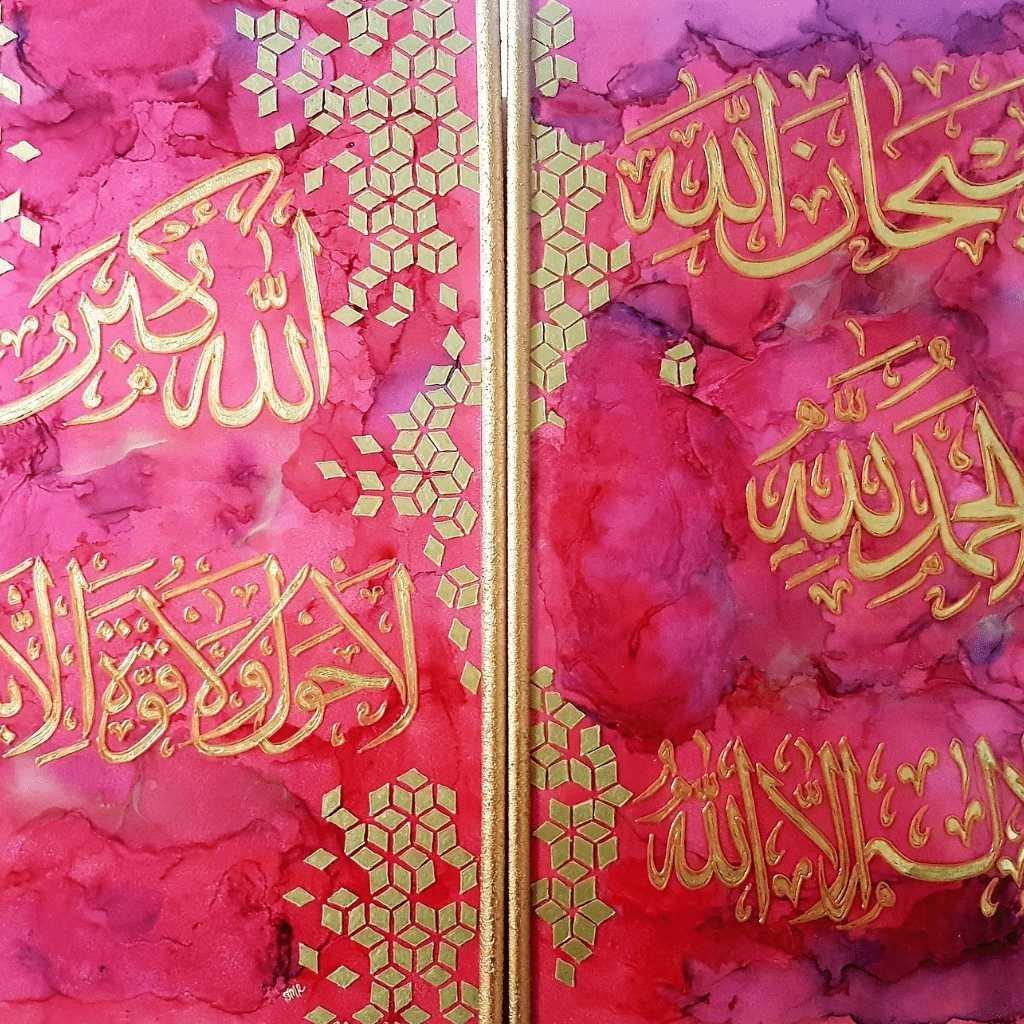 سُبْحَانَ اللّٰهِ
الْحَمْدُ لِلّٰهِ
إِلٰهَ إِلَّا اللّٰهُ
اَللّٰهُ أَكْبَر
لَا حَوْلَ وَلَا قُوَّةَ إِلَّا